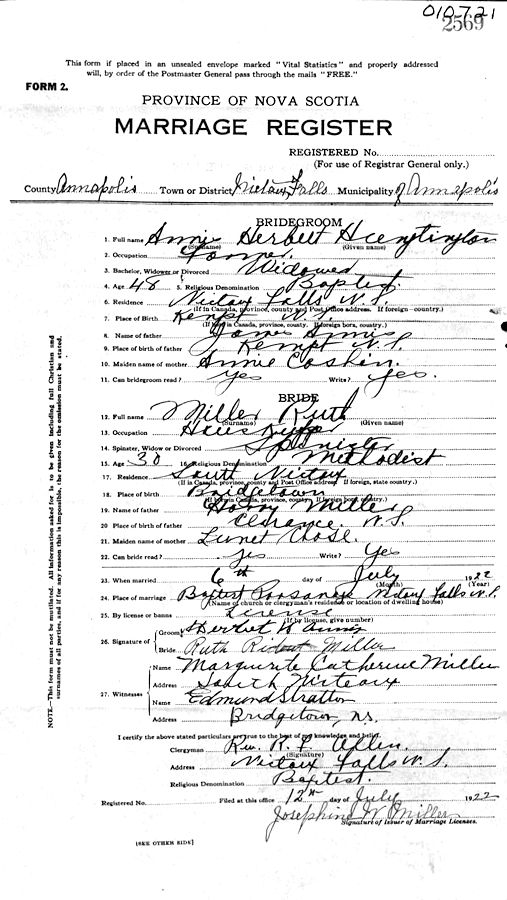 010721
2569
This form if placed in an unsealed envelope marked "Vital Statistics" and properly addressed
will, by order of the Postmaster General pass through the mails "FREE."
FORM 2.
PROVINCE OF NOVA SCOTIA
MARRIAGE REGISTER
REGISTERED No.
(For use of Registrar General only.)
County Annapolis Town or District Nictaux Falls Municipality of Annapolis
BRIDEGROOM
1. Full name Annis Herbert Huntington
(Surname) (Given name)
2. Occupation Farmer
3. Bachelor, Widower or Divorced Widowed
4. Age 48 5. Religious Denomination Baptist
6. Residence Nictaux Falls N.S.
(If in Canada, province, county and Post Office address. If foreign—country.)
7. Place of Birth Kempt N.S.
(If born in Canada, province, county. If foreign born, country.)
8. Name of father Annis
9. Place of birth of father Kempt N.S.
10. Maiden name of mother Annie
11. Can bridegroom read? yes Write? yes.
BRIDE
12. Full name Miller Ruth
(Surname) (Given name)
13. Occupation
14. Spinster, Widow or Divorced Spinster
15. Age 30 16. Religious Denomination Methodist
17. Residence South Nictaux
(If in Canada, province, county and Post Office address. If foreign, state country.)
18. Place of birth Bridgetown
(If born in Canada, province, county. If foreign born, country.)
19. Name of father Harry Miller
20. Place of birth of father Clarance N.S.
21. Maiden name of mother Chase.
22. Can bride read? yes Write? Yes
23. When married 6th day of July 1922
(Month) (Year)
24. Place of marriage Baptist Parsonage Nictaux Falls N.S.
(Name of church or clergyman's residence or location of dwelling house)
25. By license or banns License
(If by license, give number)
26. Signature of
Groom Herbert H Annis
Bride Ruth Miller
27. Witnesses
Name Marguerite Catherine Miller
Address South Nictaux
Name Edmund Stratton
Address Bridgetown, N.S.
I certify the above stated particulars are true to the best of my knowledge and belief.
Clergyman Rev. R. L. Allen.
(Signature)
Address Nictaux Falls N.S.
Religious Denomination Baptist.
Registered No. Filed at this office 12th day of July 1922
Josephine W Miller
Signature of Issuer of Marriage Licenses.
[SEE OTHER SIDE]
NOTE—This form must not be mutilated. All information asked for is to be given including full Christian and
surnames of all parties, and if for any reason this is impossible, the reason for the omission must be stated.